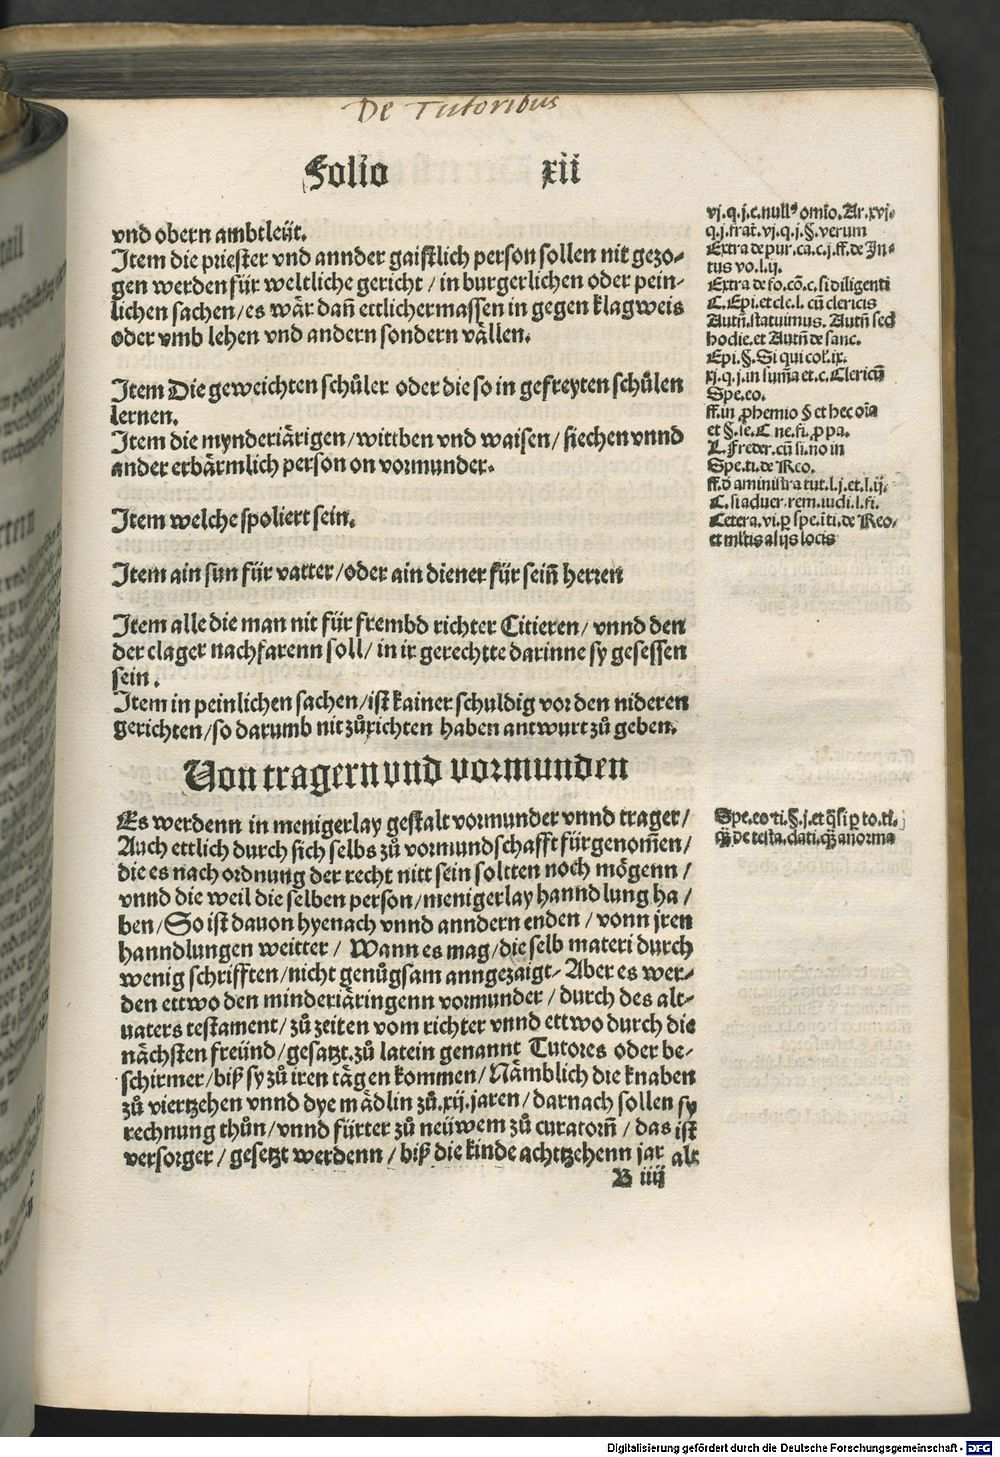 De Tutoribus
Folio xii
vnd obern ambtleüt.
Item die priester vnd annder gaistlich person sollen nit gezo-
gen werden für weltliche gericht / in burgerlichen oder pein-
lichen sachen / es wär dañ ettlichermassen in gegen klagweis
oder vmb lehen vnd andern sondern vällen.
Item Die geweichten schůler oder die so in gefreyten schůlen
lernen.
Item die mynderiärigen / wittben vnd waisen / siechen vnnd
ander erbärmlich person on vormunder.
Item welche spoliert sein.
Item ain sun für vatter / oder ain diener für seiñ herren
Item alle die man nit für frembd richter Citieren / vnnd den
der clager nachfarenn soll / in ir gerechtte darinne sy gesessen
sein.
Item in peinlichen sachen / ist kainer schuldig vor den nideren
gerichten / so darumb nit zůrichten haben antwurt zů geben.
vj.q.j.c.null⁹ omīo. Ar.xvj-
q.j.frat̄.vj.q.j.§.verum
Extra de pur.ca.c.j.ff.de In-
tus vo.l.ij.
Extra de fo.cō.c.si diligenti
C.Epi.et cle.l.cū clericis
Autñ.statuimus. Autñ sed
hodie.et Autñ de sanc.
Epi.§.Si qui col.ix.
xj.q.j.in sum̄a et.c.Clericū
Spe.eo.
ff.in ꝓhemio § et hec oīa
et §.ie.C ne.fi.ꝓ pa.
L.Freder.cū si.no in
Spe.ti.de Reo.
ff.ď aministra tut.l.j.et.l.ij.
C.si aduer.rem.iudi.l.fi.
Cetera.vi.ꝑ spe.ī ti.de Reo.
et ml̄tis alijs locis
Von tragern vnd vormunden
Es werdenn in menigerlay gestalt vormunder vnnd trager /
Auch ettlich durch sich selbs zů vormundschafft fürgenom̄en /
die es nach ordnung der recht nitt sein soltten noch mögenn /
vnnd die weil die selben person / menigerlay hanndlung ha /
ben / So ist dauon hyenach vnnd anndern enden / vonn jren
hanndlungen weitter / Wann es mag / die selb materi durch
wenig schrifften / nicht genůgsam anngezaigt- Aber es wer-
den ettwo den minderiäringenn vormunder / durch des alt-
uaters testament / zů zeiten vom richter vnnd ettwo durch die
nächsten freünd / gesatzt. zů latein genannt Tutores oder be-
schirmer / biß sy zů iren tägen kommen / Nämblich die knaben
zů viertzehen vnnd dye mädlin zů.xij.jaren / darnach sollen sy
rechnung thůn / vnnd fürter zů neüwem zů curatorñ / das ist
versorger / gesetzt werdenn / biß die kinde achttzehenn jar alt
Spe.eo ti.§.j.et q̄si ꝑ to.ti.
de testa.dati. anorma
B iiij
Digitalisierung gefördert durch die Deutsche Forschungsgemeinschaft - DFG